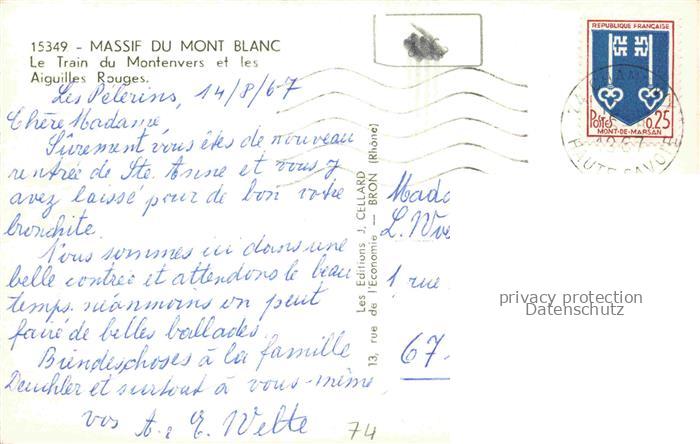 15349 - MASSIF DU MONT BLANC
Le Train du Montenvers et les
Aiguilles Rouges.
Les Pélerins, 14/8/67
Chère Madame,
Sûrement vous êtes de nouveau
rentrée de Ste. Anne et vous y
avez laissé pour de bon votre
bronchite.
Nous sommes ici dans une
belle contrée et attendons le beau
temps. néanmoins on peut
faire de belles ballades.
Biendeschoses à la famille
Deuchler et surtout à vous-même
vos A. E. Welte
74
Les Editions J. CELLARD
13, rue de l'Economie — BRON (Rhône)
REPUBLIQUE FRANÇAISE
Postes 0,25
MONT-DE-MARSAN
1967
HAUTE SAVOIE
Mada
L.
1 rue
67-
privacy protection
Datenschutz